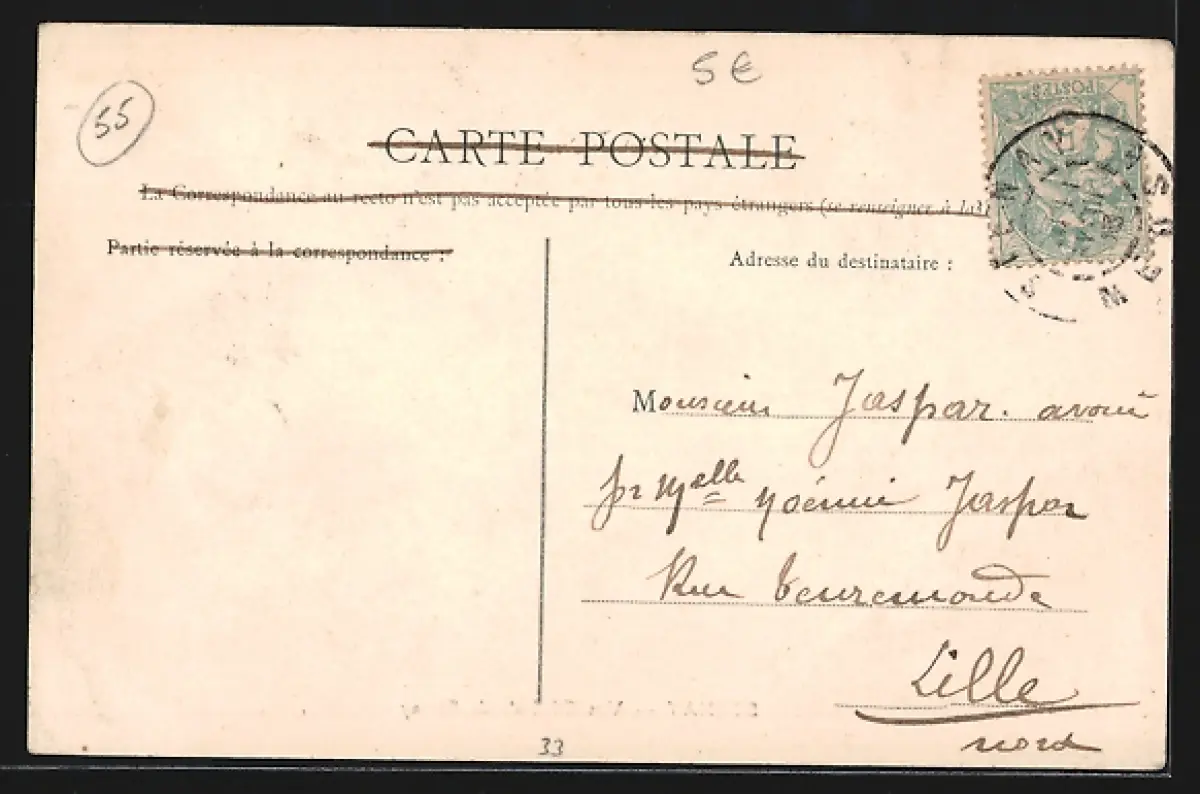 5€
55
CARTE POSTALE
POSTES
La Correspondance au recto n'est pas acceptée par tous les pays étrangers (se renseigner à la
Partie réservée à la correspondance :
Adresse du destinataire :
STENAY MEUSE
Monsieur Jaspar. avoué
pr Melle Noémie Jaspar
Rue
Lille
nord
33